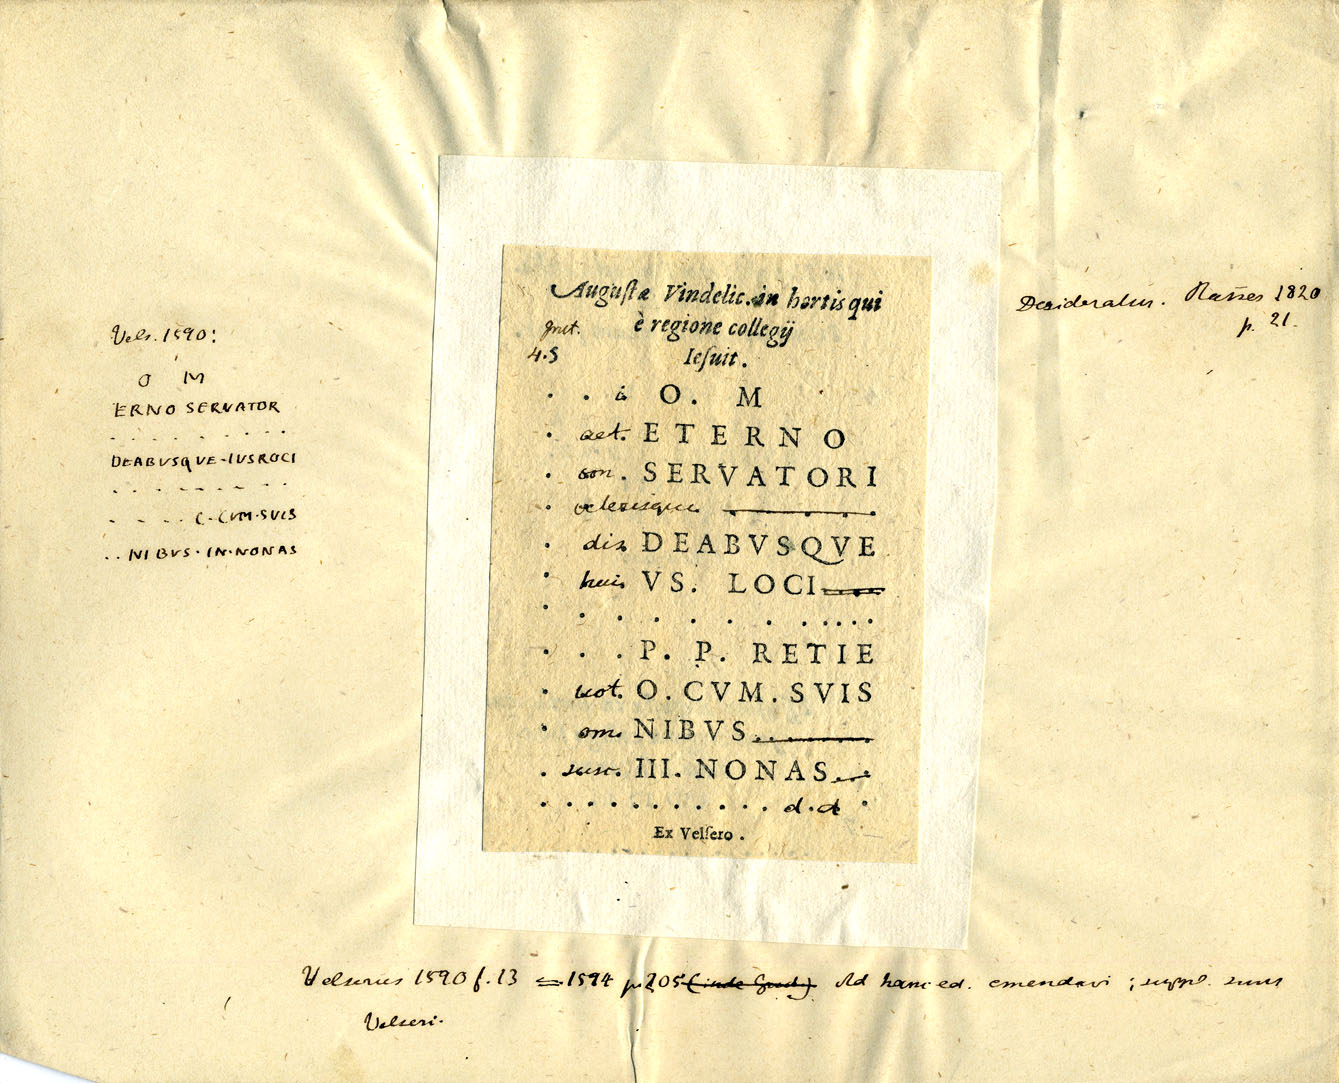 Vels. 1590:
O M
ERNO SERVATOR
. . . . . . . .
DEABVSQVE·IVSROCI
. . . . . . . .
. . . . C·CVM·SVIS
. . NIBVS·IN·NONAS
Augustæ Vindelic. in hortis qui
Grut. è regione collegij
4.5 Iesuit.
. . i O. M
. aet. ETERNO
. con. SERVATORI
. ceterisque
. dis DEABVSQVE
. huic VS. LOCI
. . . . . . . . . . .
. . . P. P. RETIE
. vot. O. CVM. SVIS
. om. NIBVS
. susc. III. NONAS
. . . . . . . . . . . d.d .
Ex Velsero.
Desideratur. Raiser 1820
p. 21.
Velserus 1590 f. 13 = 1594 p. 205 (inde Grut.) Ad hanc ed. emendavi; suppl. sunt
Velseri.